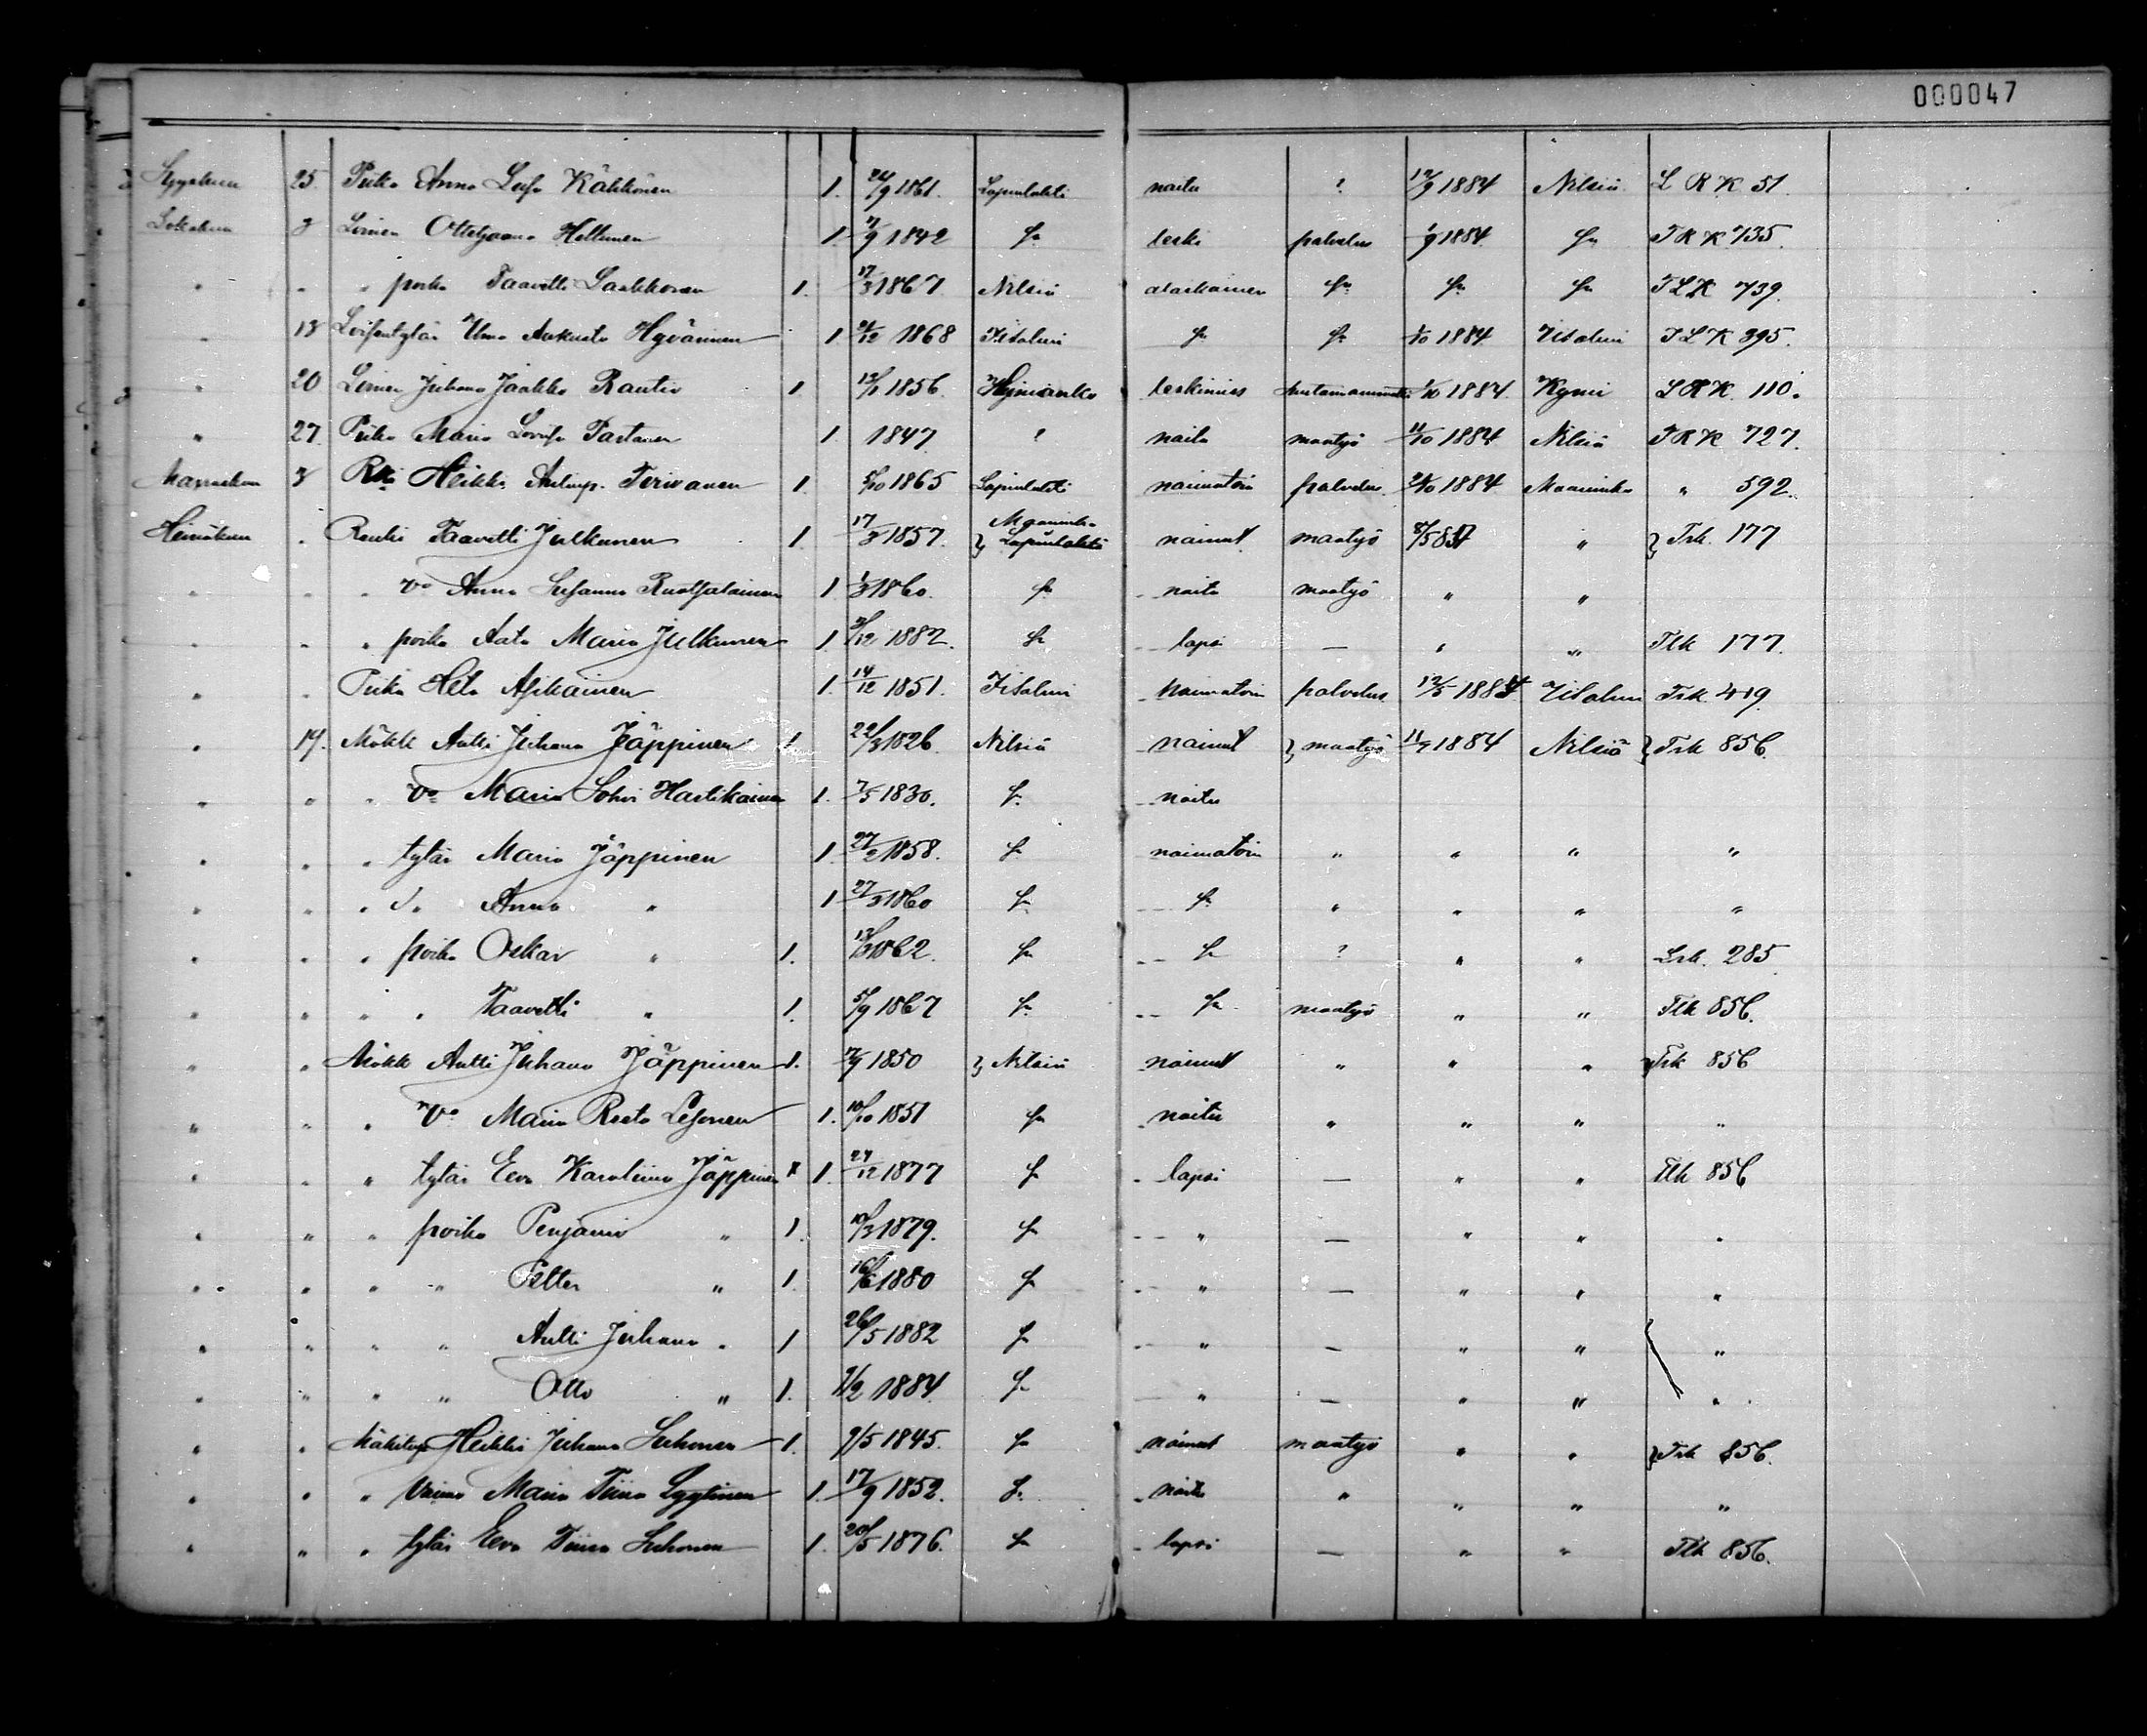 000047
Syyskuu 25. Piika Anna Lisa Kähkönen 1. 24/9 1861. Lapinlahti naitu ? 12/9 1884 Nilsiä L R K 51.
Lokakuu 3 Loinen Ottetjaana Heltunen 1. 7/9 1842 S:n leski palvelus 1/9 1884 S:n T R K 735.
" " " poika Taavetti Laakkonen 1. 17/3 1867 Nilsiä alaikainen S:n S:n S:n T L K 739.
" 13 Loisentytär Ulma Aukusta Hyvärinen 1 21/12 1868 Iisalmi S:n S:n /10 1884 Iisalmi T L K 395.
" 20 Loinen Juhana Jaakko Rautio 1. 1856. leskimies 1/10 1884. Kymi L R K. 110.
" 27. Piika Maria Lovisa Tastanen 1. 1847. ? naitu maatyö 11/10 1884 Nilsiä T R K 727.
Marraskuu 3 Rki Heikki Terivanen 1. 5/10 1865 Lapinlahti naimatoin palvelus. 2/10 1884 Maaninka " 592.
Heinäkuu " Renki Taavetti Julkunen 1. 17/3 1857. Maaninka Lapinlahti nainut maatyö 8/5 84 " } Trk. 177
" " " Vo Anna Susanna Ruotsalainen 1. 1/3 1860. S:n naitu maatyö " "
" " " poika Aatu Mauno Julkunen 1. 3/12 1882. S:n lapsi — " " Tlk 177.
" " Piika Heta Asikainen 1. 14/12 1851. Iisalmi naimatoin palvelus 12/5 1884 Iisalmi Trk. 419.
" 19. Mökk Antti Juhana Jäppinen 1. 22/3 1826. Nilsiä nainut } maatyö 11/7 1884 Nilsiä } Trk 856.
" " " Vo Maria Sohvi Hartikainen 1. 7/5 1830. S:n naitu
" " " tytär Maria Jäppinen 1. 27/2 1858. S:n naimatoin " " " "
" " " d:o Anna " 1 27/3 1860 S:n S:n " " " "
" " " poika Oskar " 1. 13/3 1862. S:n S:n ? " " Lrk. 285
" " " " Taavetti " 1. 5/9 1867 S:n S:n maatyö " " Tlk 856.
" " Mökk Antti Juhana Jäppinen 1. 7/9 1850 } Nilsiä nainut " " " } Trk 856
" " " Vo Maria Reeta Lesonen 1. 10/10 1851 S:n naitu " " " "
" " " tytär Eeva Karoliina Jäppinen 1. 24/12 1877 S:n lapsi — " " Tlk 856
" " " poika Penjami " 1. 10/3 1879. S:n " — " " "
" " " " Petter " 1. 16/6 1880 S:n " — " " "
" " " " Antti Juhana " 1 26/5 1882 S:n " — " " "
" " " " Otto " 1. 9/2 1884. S:n " — " " "
" " Mäkitup Heikki Juhana Suhonen 1. 9/5 1845. S:n nainut maatyö " " } Trk 856.
" " " Vaimo Maria Tiina Lyytinen 1. 17/9 1852. S:n naitu " " " "
" " " tytär Eeva Tiina Suhonen 1. 20/5 1876. S:n lapsi — " " Tlk 856.